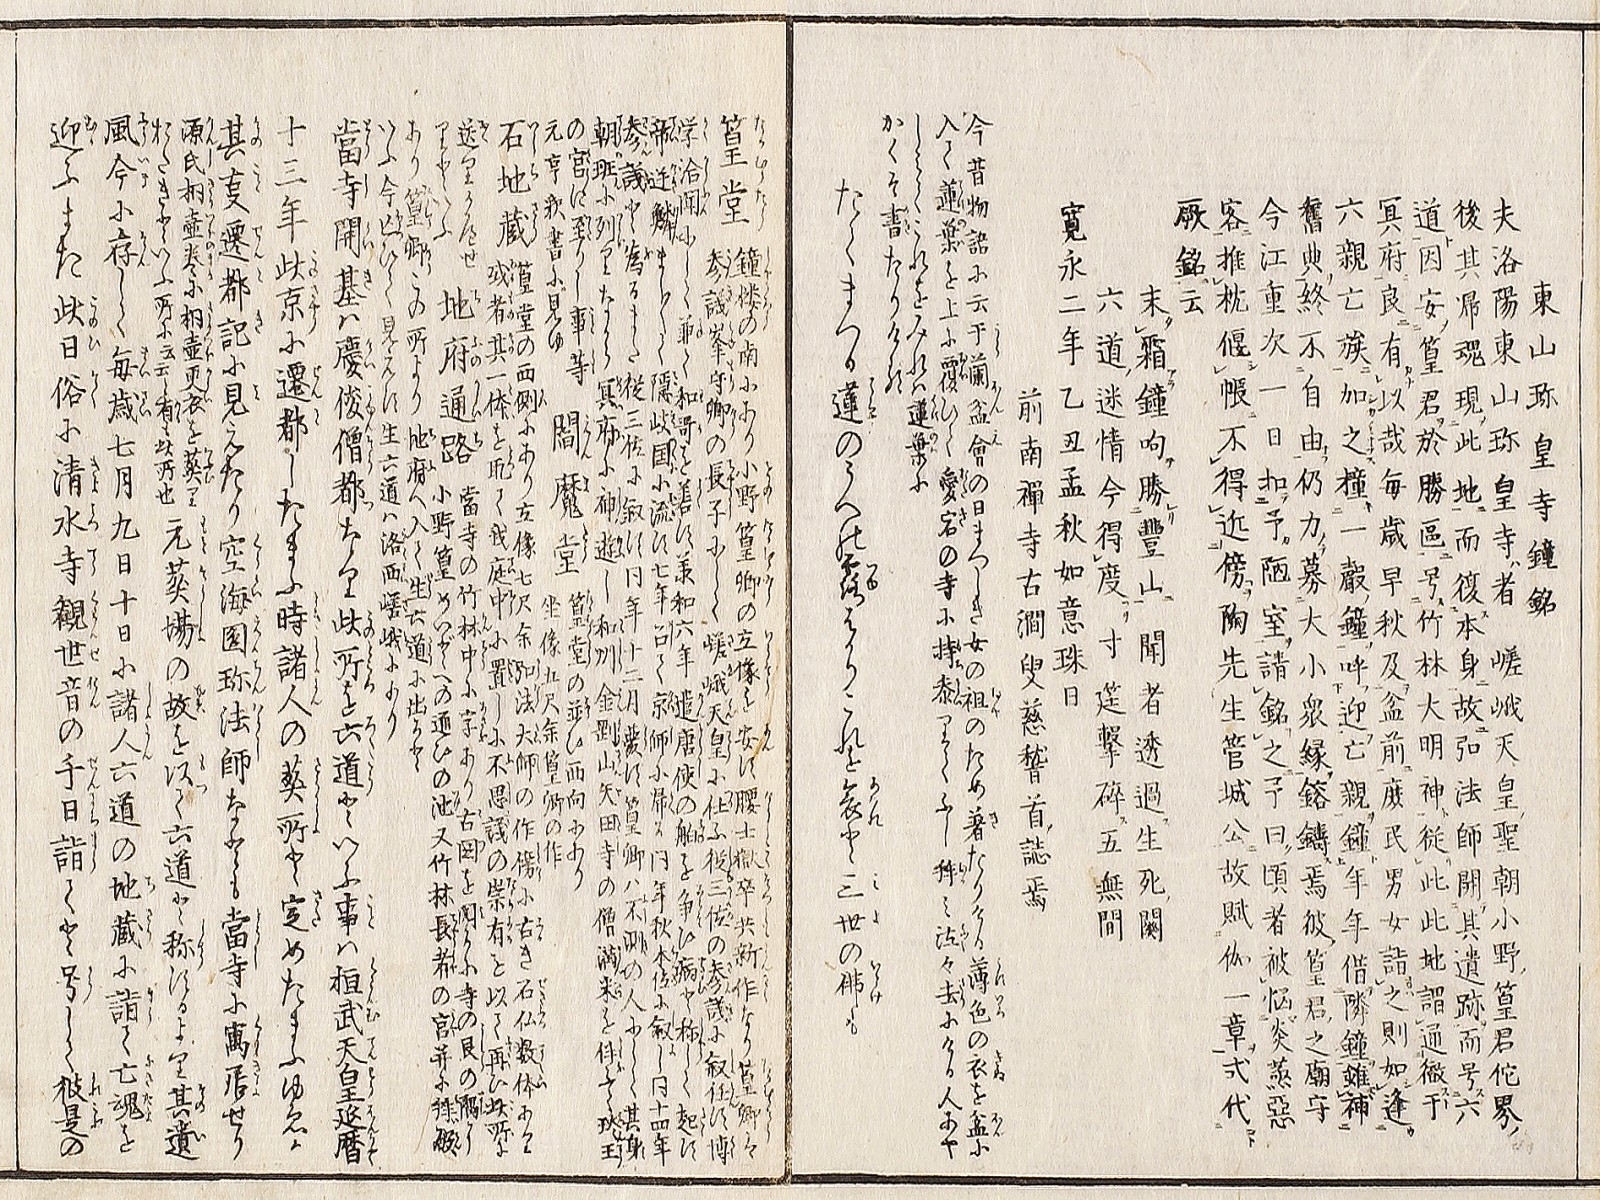 東山珍皇寺鐘銘
夫洛陽東山珍皇寺者嵯峨天皇聖朝小野篁君佗界
後其帰魂現此地而復本身故弘法師開其遺跡而号六
道因安篁君於勝區号竹林大明神従此此地謂通徹于
冥府良有以哉毎歳早秋及盆前庶民男女詣之則如逢
六親亡族加之撞一嚴鐘呼迎亡親鐘年年借隣鐘雖補
舊典終不自由仍力募大小衆縁鎔鑄焉彼篁君之廟守
今江重次一日扣予陋室請銘之予曰頃者被悩炎蒸惡
客推枕偃帳不得近傍陶先生管城公故賦伽一章式代
厥銘云
末霜鐘响勝豐山 聞者透過生死關
六道迷情今得度 寸莛撃碎五無間
寛永二年乙丑孟秋如意珠日
前南禪寺古澗叟慈稽首誌焉
今昔物語に云于蘭盆會の日まづしき女の祖のため着たりける薄色の衣を盆に
入て蓮葉を上に覆ひて愛宕の寺に持参りてふし拝みて泣々去にける人あや
しとてこれをみれバ蓮葉に
かくぞ書たりける
たてまつる蓮のうへの露ばかりこれを哀とに三世の佛も
篁堂 鐘楼の南にあり小野篁卿の立像を安ず腰士獄卒共新作なり篁卿は
参議岑守卿の長子にして嵯峨天皇に仕ふ従三位の参議に叙任す博
学洽聞にして兼て和哥を善す承和六年遣唐使の舶を争ひ病と称して起ず
帝逆鱗ましまして隠岐国に流す七年召て京師に帰る同年秋本位に叙し同十四年
参議と為るまた従三位に叙す同年十二月薨ず篁卿ハ不測の人にして其身
朝班に列りながら冥府に神遊し和州金剛山矢田寺の僧満米を伴て琰王
の宮に至りし事等
元亨釈書に見ゆ 閻魔堂 篁堂の並び西向にあり
坐像五尺余篁卿の作
石地蔵 篁堂の西側にあり立像七尺余弘法大師の作傍に古き石仏数体あり
或者其一体を取て我庭中に置しに不思議の祟有を以て再び此所に
送りかへせ
りとぞ 地府通路 當寺の竹林中に字あり古図を閲るに寺の艮の隅に
小野篁めいどへの通ひの池又竹林長者の宮并に拝殿
あり篁卿この所より地府へ入て生六道に出るとぞ
いふ今此ひろく見えず生六道ハ洛西嵯峨にあり
當寺開基ハ慶俊僧都なり此所を六道といふ事ハ桓武天皇延暦
十三年此京に遷都したまふ時諸人の葬所と定めたまふゆゑに
其亥遷都記に見えたり空海国珍法師なども當寺に寓居せり
源氏桐壺巻に桐壺更衣を葬り
おたぎといふ所に云云有も此所也 元葬場の故を以て六道と称するより其遺
風今に存して毎歳七月九日十日に諸人六道の地蔵に詣て亡魂を
迎ふまた此日俗に清水寺観世音の千日詣てと号して彼是の